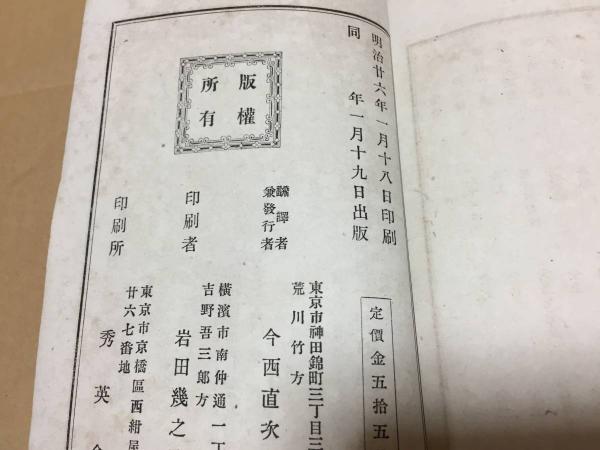 明治廿六年一月十八日印刷
同年一月十九日出版
定價金五拾五
版權
所有
飜譯者
兼發行者
東京市神田錦町三丁目三
荒川竹方
今西直次
印刷者
橫濱市南仲通一丁
吉野吾三郎方
岩田幾之
印刷所
東京市京橋區西紺屋
廿六七番地
秀英